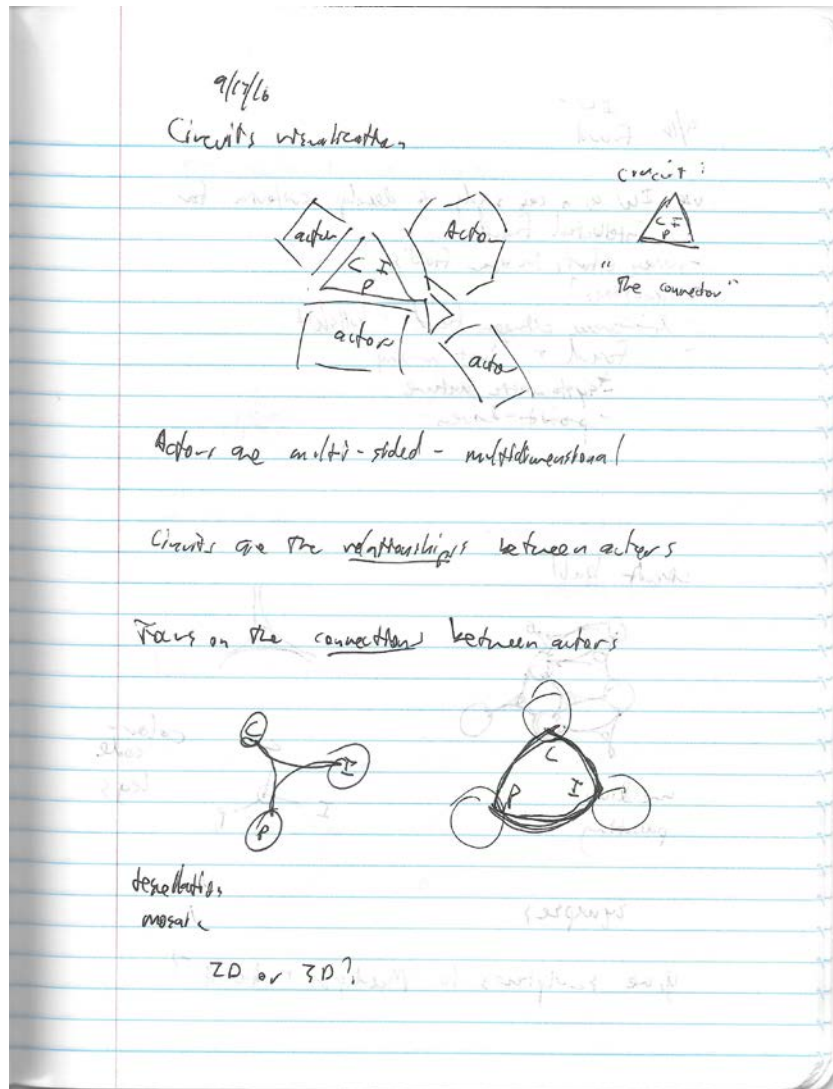 9/17/16
Circuits visualization
circuit:
C I
P
"The connector"
actor
Actor
C I
P
actor
actor
Actors are multi-sided - multidimensional
Circuits are the relationships between actors
Focus on the connections between actors
C
I
P
C
P I
tesellation
mosaic
2D or 3D?